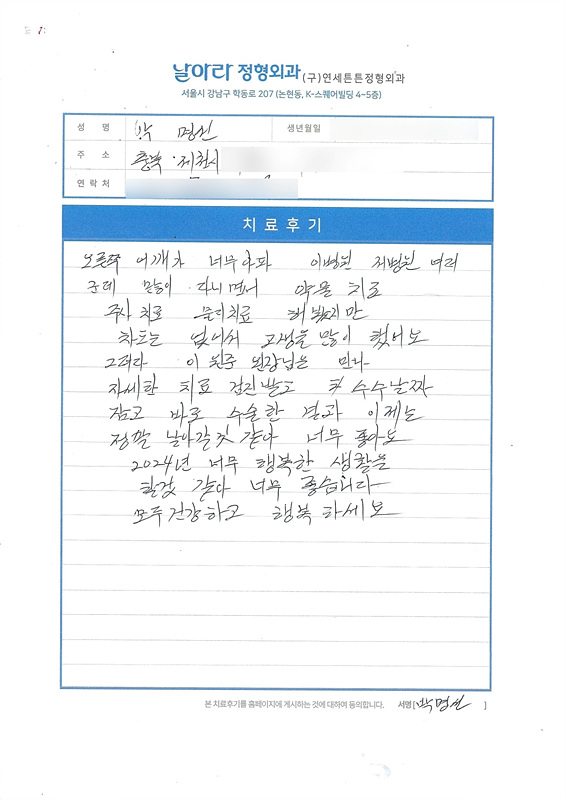 1
날아라 정형외과 (구)연세튼튼정형외과
서울시 강남구 학동로 207 (논현동, K-스퀘어빌딩 4-5층)
성 명 박 명선 생년월일
주 소 충북 제천시
연락처
치료후기
오른쪽 어깨가 너무아파 이병원 저병원 여러
군데 많이 다니면서 약물 치료
주사 치료 물리치료 해봤지만
차도는 없어서 고생을 많이 했어요
그러다 이 원장님을 만나
자세한 치료 검진받고 수술날짜
잡고 바로 수술한 결과 이제는
정말 날아갈것 같아 너무 좋아요
2024년 너무 행복한 생활을
할것 같다 너무 좋습니다
모두건강하고 행복하세요
본 치료후기를 홈페이지에 게시하는 것에 대하여 동의합니다. 서명 [박명선 ]